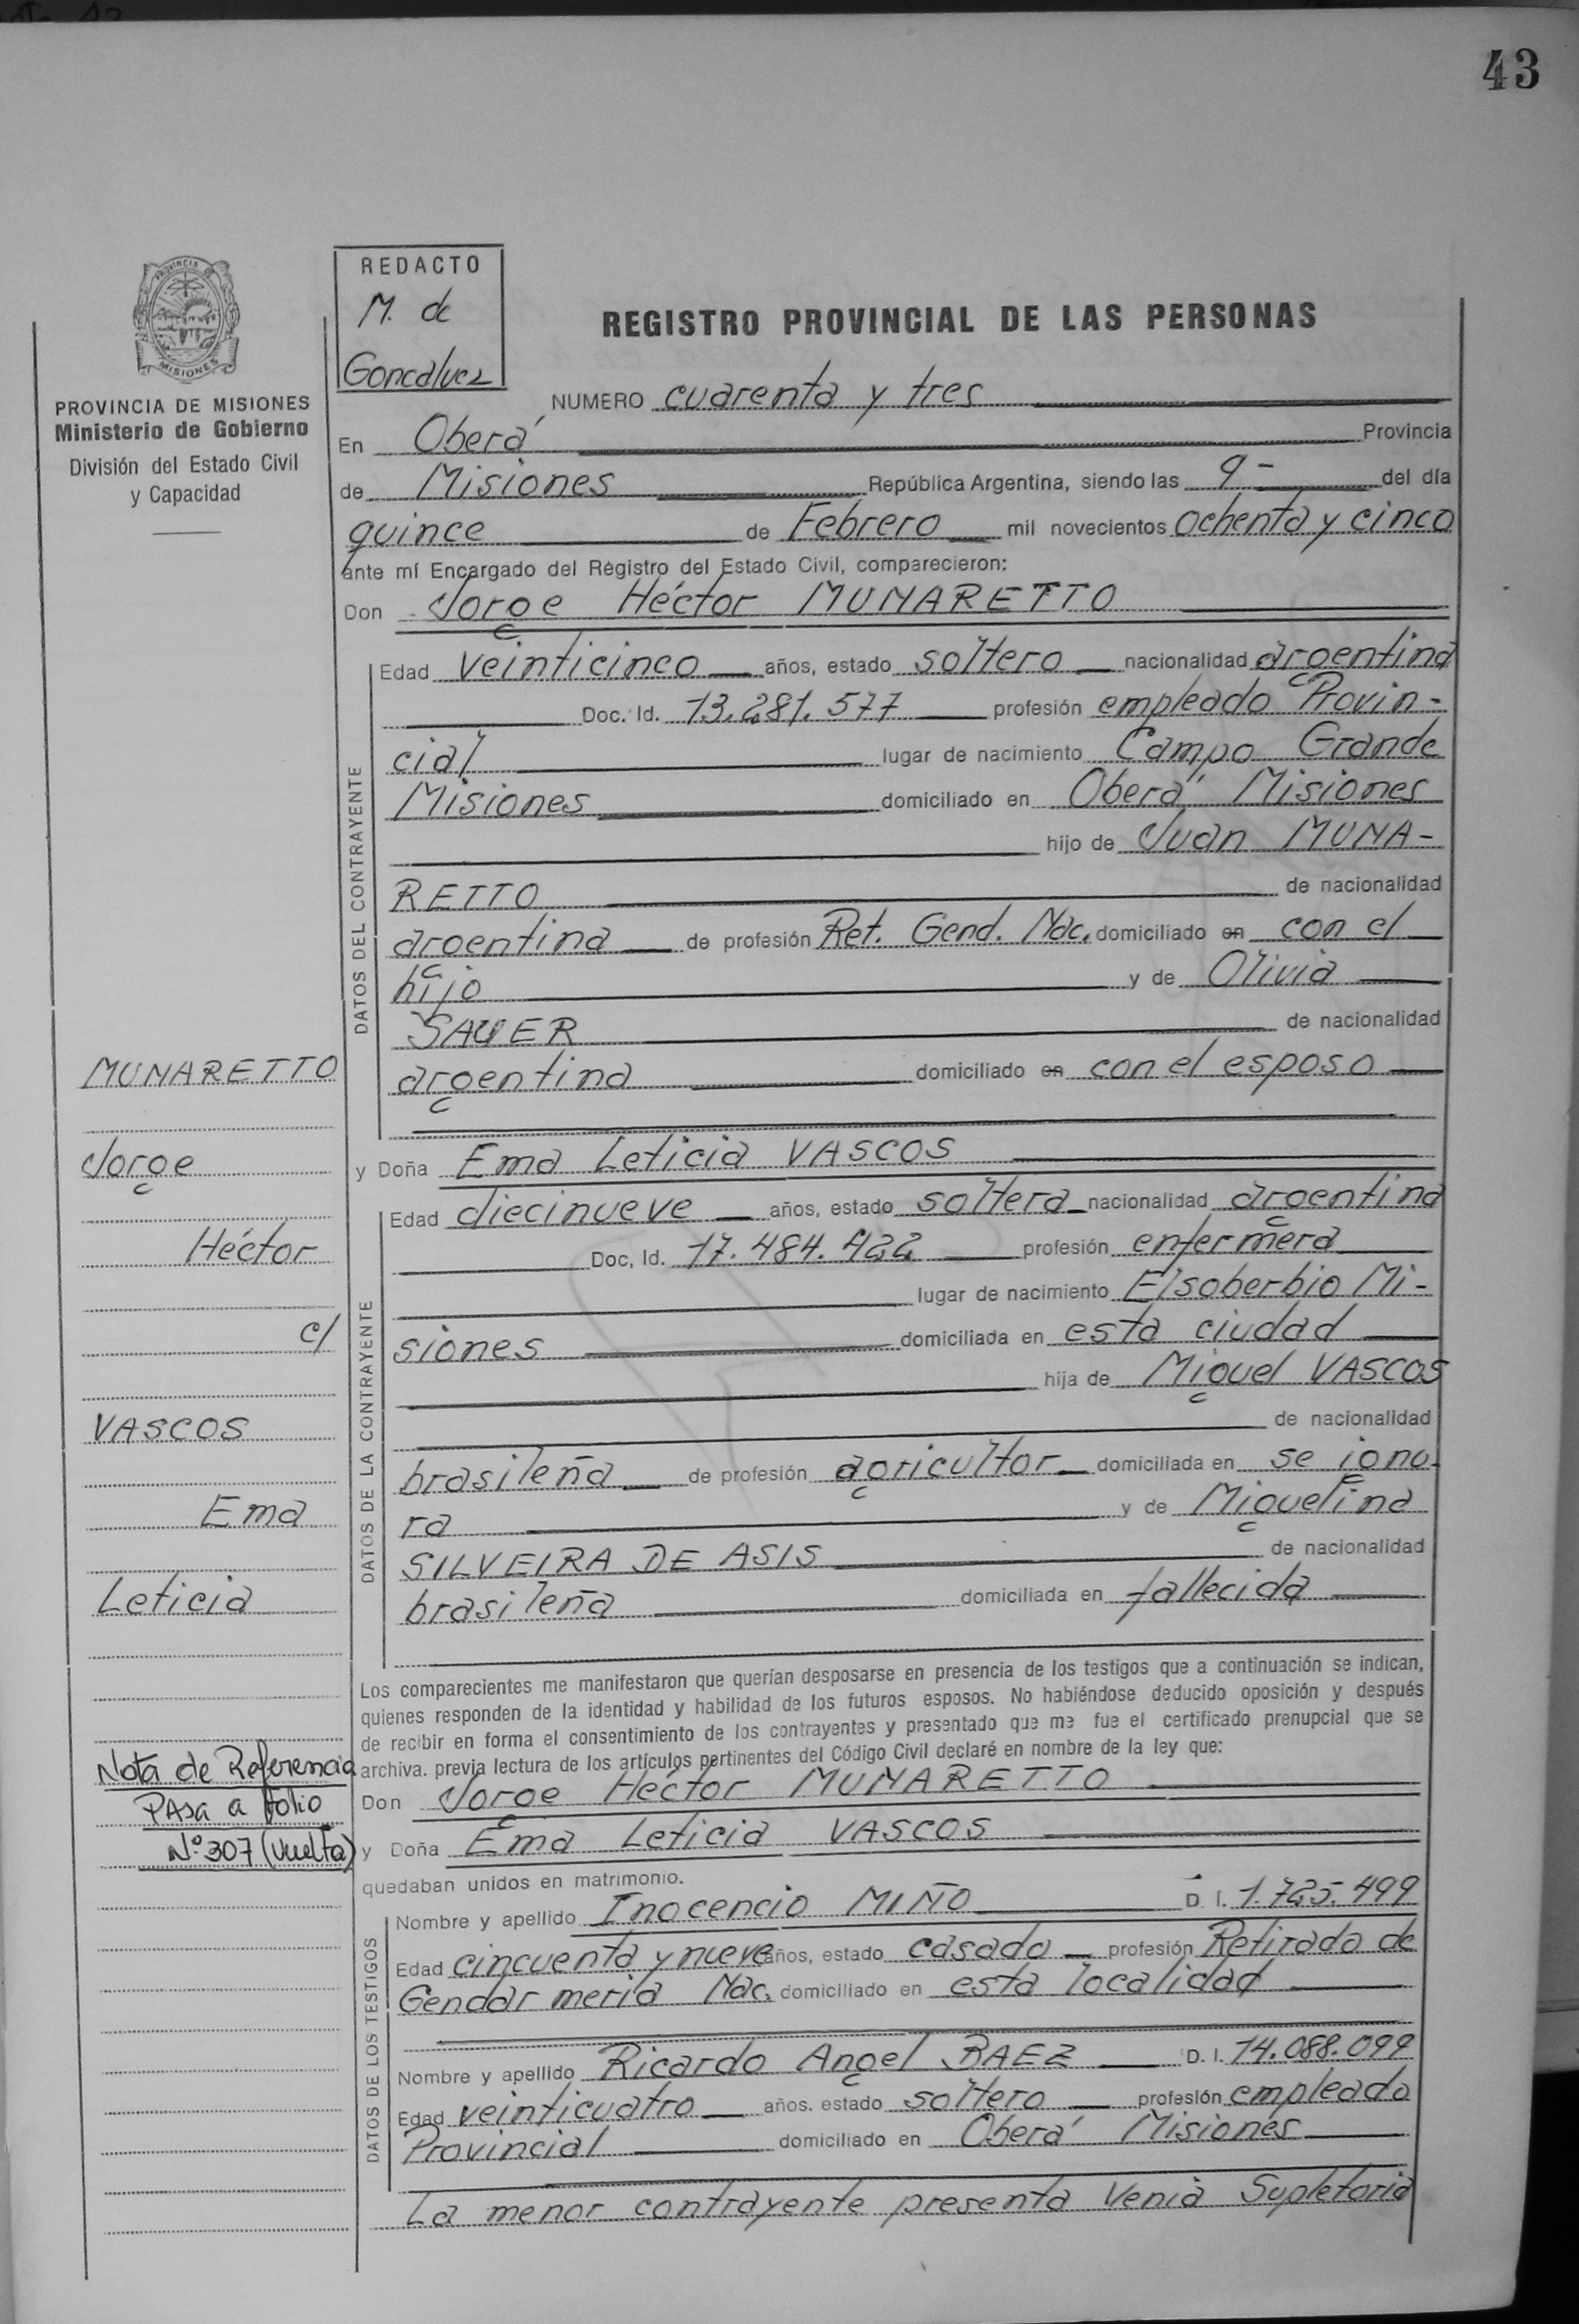 43
REDACTO
M. de
Goncalvez
PROVINCIA DE
MISIONES
PROVINCIA DE MISIONES
Ministerio de Gobierno
División del Estado Civil
y Capacidad
REGISTRO PROVINCIAL DE LAS PERSONAS
NUMERO cuarenta y tres
En Oberá Provincia
de Misiones República Argentina, siendo las 9- del día
quince de Febrero mil novecientos ochenta y cinco
ante mí Encargado del Régistro del Estado Civil, comparecieron:
Don Jorge Héctor MUNARETTO
DATOS DEL CONTRAYENTE
Edad veinticinco años, estado soltero nacionalidad argentina
Doc. Id. 13.281.577 profesión empleado Provin-
cial lugar de nacimiento Campo Grande
Misiones domiciliado en Oberá Misiones
hijo de Juan MUNA-
RETTO de nacionalidad
argentina de profesión Ret. Gend. Nac. domiciliado en con el
hijo y de Olivia
SAUER de nacionalidad
argentina domiciliado en con el esposo
y Doña Ema Leticia VASCOS
DATOS DE LA CONTRAYENTE
Edad diecinueve años, estado soltera nacionalidad argentina
Doc, Id. 17.484.422 profesión enfermera
lugar de nacimiento El soberbio Mi-
siones domiciliada en esta ciudad
hija de Miguel VASCOS
de nacionalidad
brasileña de profesión agricultor domiciliada en se igno-
ra y de Miguelina
SILVEIRA DE ASIS de nacionalidad
brasileña domiciliada en fallecida
Los comparecientes me manifestaron que querían desposarse en presencia de los testigos que a continuación se indican,
quienes responden de la identidad y habilidad de los futuros esposos. No habiéndose deducido oposición y después
de recibir en forma el consentimiento de los contrayentes y presentado que me fue el certificado prenupcial que se
archiva. previa lectura de los artículos pertinentes del Código Civil declaré en nombre de la ley que:
Don Jorge Héctor MUNARETTO
y Doña Ema Leticia VASCOS
quedaban unidos en matrimonio.
DATOS DE LOS TESTIGOS
Nombre y apellido Inocencio MIÑO D. I. 1.725.499
Edad cincuenta y nueve años, estado casado profesión Retirado de
Gendarmeria Nac. domiciliado en esta localidad
Nombre y apellido Ricardo Angel BAEZ D. I. 14.088.099
Edad veinticuatro años. estado soltero profesión empleado
Provincial domiciliado en Oberá Misiones
La menor contrayente presenta Venia Supletoria
MUNARETTO
Jorge
Héctor
c/
VASCOS
Ema
Leticia
Nota de Referencia
PAsa a folio
N° 307 (Vuelta)